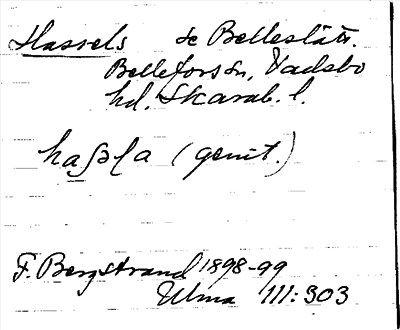 Hassels se Belleslätt.
Bellefors sn, Vadsbo
hd. Skarab. l.
haßla (genit.)
F. Bergstrand 1898-99
Ulma 111:303